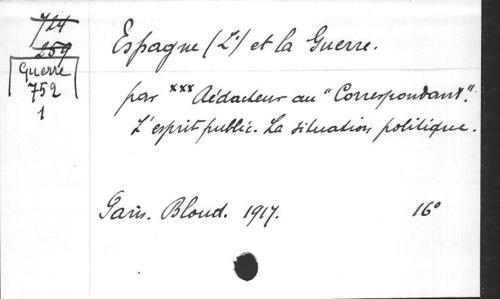 724
259
Guerre
752
1
Espagne (L') et la Guerre.
par xxx Rédacteur au "Correspondant".
L'esprit public. La situation politique.
Paris. Bloud. 1917. 16°